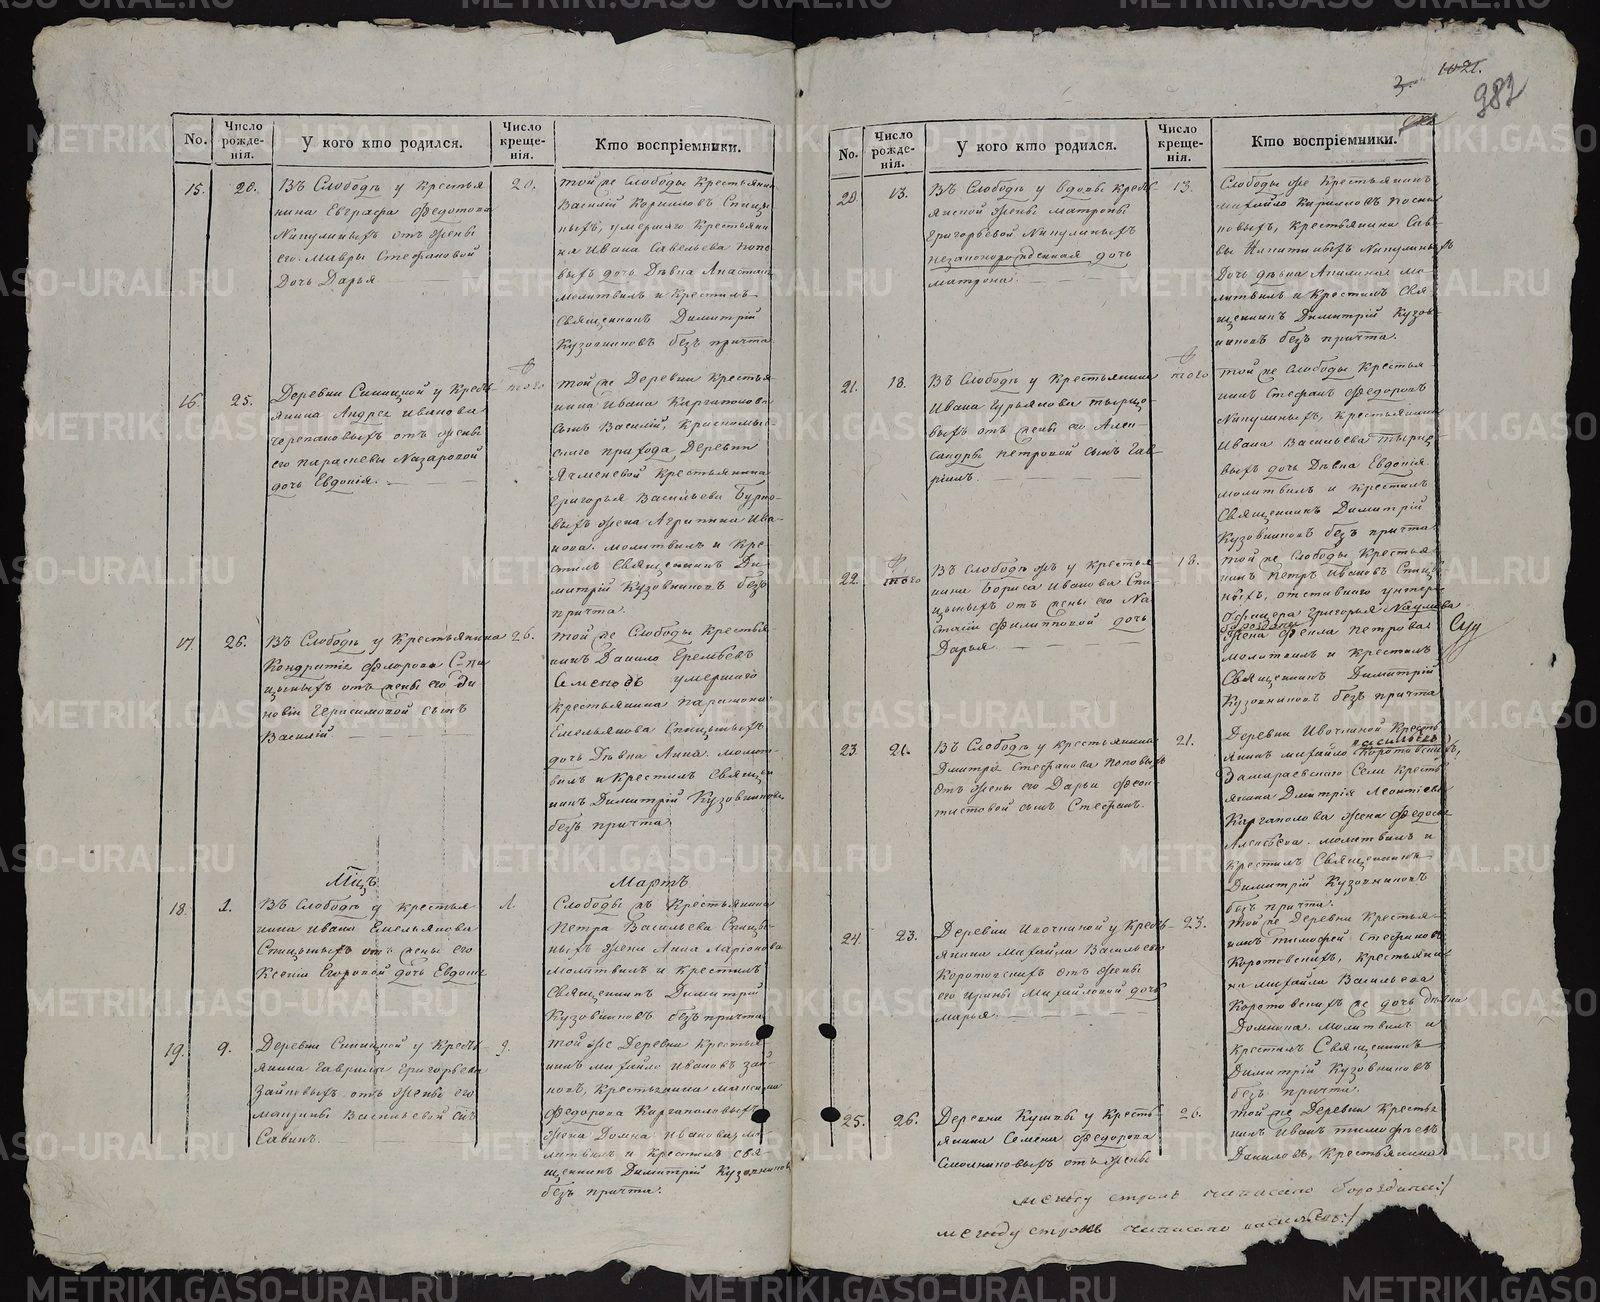 3. 1021.
982
No.
Число рожде-нія.
У кого кто родился.
Число креще-нія.
Кто воспріемники.
15.
20.
Въ Слободѣ у крестья
нина Евграфа Федотова
Никулиныхъ отъ жены
его Мавры Стефановой
Дочь Дарья
20.
той же Слободы Крестьянинъ
Василій Корниловъ Спицы
ныхъ, умершаго Крестьяни
на Ивана Савельева Попо
выхъ дочь Дѣвка Анастасія
молитвилъ и Крестилъ
Священникъ Димитрій
Кузовниковъ безъ причта
16.
25.
Деревни Синицкой у Кресть
янина Андрея Иванова
Черепановыхъ отъ жены
его Парасковьи Назаровой
дочь Евдокія.
того
той же Деревни Крестья
нина Ивана Каргаполова
сынъ Василій, Красномыс
скаго прихода Деревни
Ячменевой Крестьянина
Григорья Васильева Бурко
выхъ жена Агрипина Ива
нова. молитвилъ и Кре
стилъ Священникъ Ди
митрій Кузовниковъ безъ
причта.
17.
26.
Въ Слободѣ у Крестьянина
Кондратія Флорова Спи
цыныхъ отъ жены его
Герасимовой сынъ
Василій
26.
той же Слободы Крестья
нинъ Данило Еремѣевъ
Семеновъ умершаго
крестьянина Парамона
Емельянова Спицыныхъ
дочь Дѣвка Анна. молит
вилъ и Крестилъ Священ
никъ Димитрій Кузовниковъ
безъ причта.
Мѣцъ
Мартъ
18.
1.
Въ Слободѣ у крестья
нина Ивана Емельянова
Спицыныхъ отъ жены его
Ксеніи Егоровой дочь Евдокія
1.
Слободы жъ Крестьянина
Петра Васильева Спицы
ныхъ жена Анна Ларіонова
молитвилъ и Крестилъ
Священникъ Димитрій
Кузовниковъ безъ причта
19.
9.
Деревни Синицкой у Кресть
янина Гаврилы Григорьева
Зайковыхъ отъ жены его
Васильевой сынъ
Савинъ.
9.
той же Деревни Крестья
нинъ Михайло Ивановъ Зай
ковъ, Крестьянина Максима
Федорова Каргаполовыхъ
жена Домна Иванова, мо
литвилъ и крестилъ Свя
щенникъ Димитрій Кузовниковъ
безъ причта.
No.
Число рожде-нія.
У кого кто родился.
Число креще-нія.
Кто воспріемники.
20.
13.
Въ Слободѣ у вдовы кресть
янской жены Матроны
Григорьевой Никулиныхъ
незаконорожденная дочь
матрона.
13.
Слободы же Крестьянинъ
михайло Кириловъ
повыхъ, крестьянина Сав
вы Никулиныхъ
Дочь дѣвка Акилина мо
литвилъ и Крестилъ Свя
щенникъ Димитрій Кузов
никовъ безъ причта.
21.
18.
Въ Слободѣ у Крестьянина
Ивана Гурьянова
выхъ отъ жены его Алек
сандры Петровой сынъ Гав
ріилъ.
того
той же Слободы Крестья
нинъ Стефанъ Федоровъ
Никулиныхъ, крестьянина
Ивана Васильева
выхъ дочь Дѣвка Евдокія
молитвилъ и крестилъ
Священникъ Димитрій
Кузовниковъ безъ причта
22.
того
Въ Слободѣ жъ у Крестья
нина Бориса Иванова Спи
цыныхъ отъ жены его На
стасіи Филипповой дочь
Дарья.
18.
той же Слободы Крестья
нинъ Петръ Ивановъ Спицы
ныхъ, отставнаго унтеръ
Офицера Григорья
бороздина
жена Фекла Петрова
молитвилъ и крестилъ
Священникъ Димитрій
Кузовниковъ безъ причта
23
21.
Въ Слободѣ у крестьянина
Дмитрія Стефанова Поповыхъ
отъ жены его Дарьи Феок
тистовой сынъ Стефанъ.
21.
Деревни Ивочкиной Кресть
янинъ михайло
васильевъ
Коротовскихъ,
Замараевскаго Села Кресть
янина Дмитрія Леонтіева
Каргаполова жена Федосья
Алексѣева. молитвилъ и
крестилъ Священникъ
Димитрій Кузовниковъ
безъ причта.
24.
23.
Деревни Ивочкиной у Кресть
янина Михайла Васильева
Коротовскихъ отъ жены
его Ирины Михайловой дочь
марья.
23.
той же Деревни Крестья
нинъ тимофей Стефановъ
Коротовскихъ, крестьяни
на михайла Васильева
Коротовскихъ же дочь дѣвка
Домнина. молитвилъ и
крестилъ Священникъ
Димитрій Кузовниковъ
безъ причта.
25.
26.
Деревни у Кресть
янина Семена Федорова
отъ жены
26.
той же Деревни Крестья
нинъ Иванъ тимофѣевъ
Даниловъ, Крестьянина
между строкъ написано бороздина:/
между строкъ написано васильевъ:/